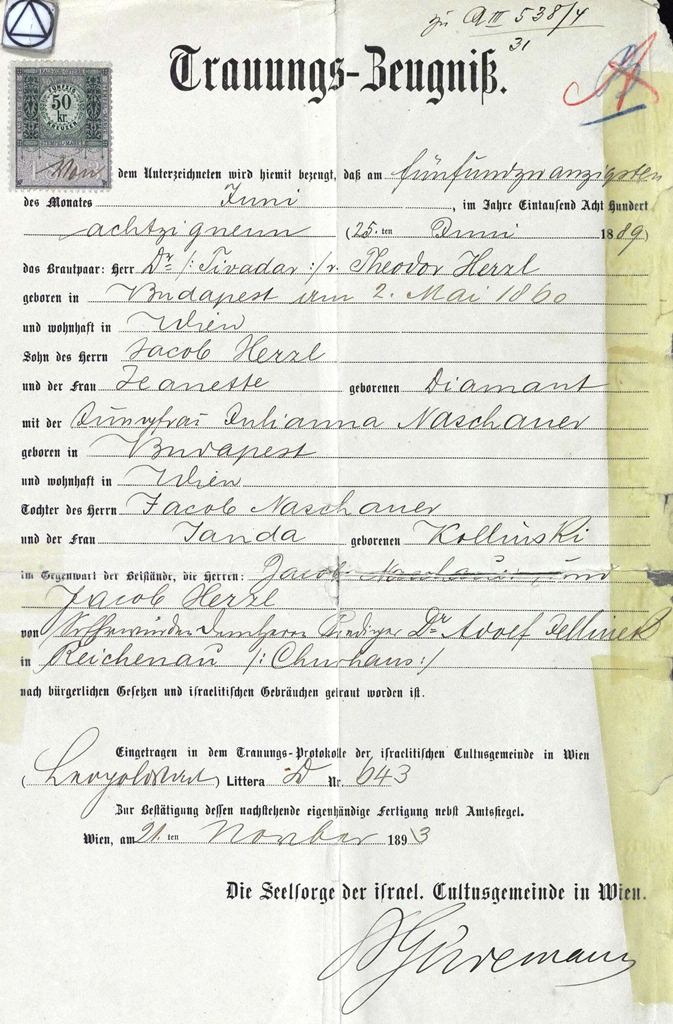 zu A III 538/4
31
Trauungs-Zeugniß.
50
kr.
Von dem Unterzeichneten wird hiemit bezeugt, daß am fünfundzwanzigsten
des Monates Juni, im Jahre Eintausend Acht Hundert
achtzigneun (25.ten Juni 1889)
das Brautpaar: Herr Dr /: Tivadar :/ Theodor Herzl
geboren in Budapest am 2. Mai 1860
und wohnhaft in Wien
Sohn des Herrn Jacob Herzl
und der Frau Jeanette geborenen Diamant
mit der Jungfrau Julianna Naschauer
geboren in Budapest
und wohnhaft in Wien
Tochter des Herrn Jacob Naschauer
und der Frau Janda geborenen Kollinski
im Gegenwart der Beistände, die Herren: Jacob Naschauer und
Jacob Herzl
von Sr Ehrwürden dem Herrn Prediger Dr Adolf Jellinek
in Reichenau /: Churhaus :/
nach bürgerlichen Gesetzen und israelitischen Gebräuchen getraut worden ist.
Eingetragen in dem Trauungs-Protokolle der israelitischen Cultusgemeinde in Wien
(Leopoldstadt) Littera D Nr. 643
Zur Bestätigung dessen nachstehende eigenhändige Fertigung nebst Amtssiegel.
Wien, am 21.ten November 1893
Die Seelsorge der israel. Cultusgemeinde in Wien.
Güdemann